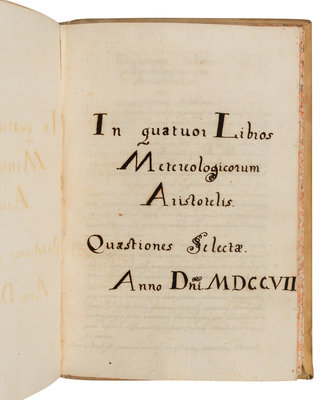 In quatuor Libros
Metereologicorum
Aristotelis.
Quæstiones Selectæ.
Anno Dñi MDCCVII